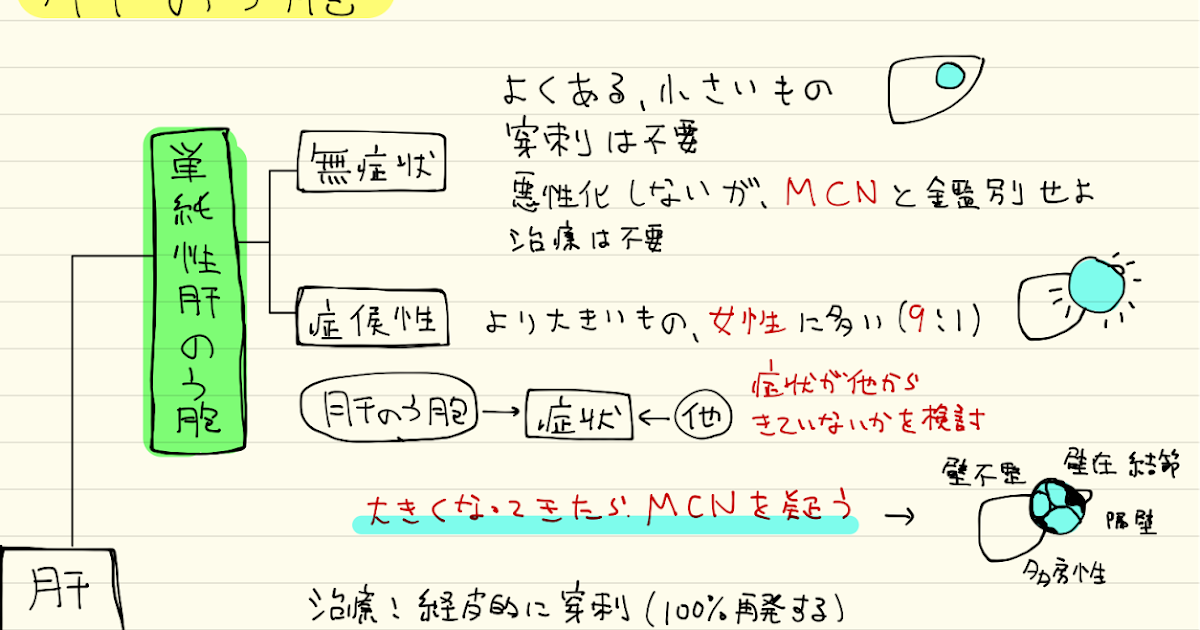 肝のう胞
単純性肝のう胞
無症状
よくある、小さいもの
穿刺は不要
悪性化しないが、MCNと鑑別せよ
治療は不要
症候性
より大きいもの、女性に多い(9:1)
肝のう胞→症状←他
症状が他から
きていないかを検討
大きくなってきたら MCNを疑う →
壁不整
壁在結節
隔壁
多房性
肝
治療:経皮的に穿刺(100%再発する)